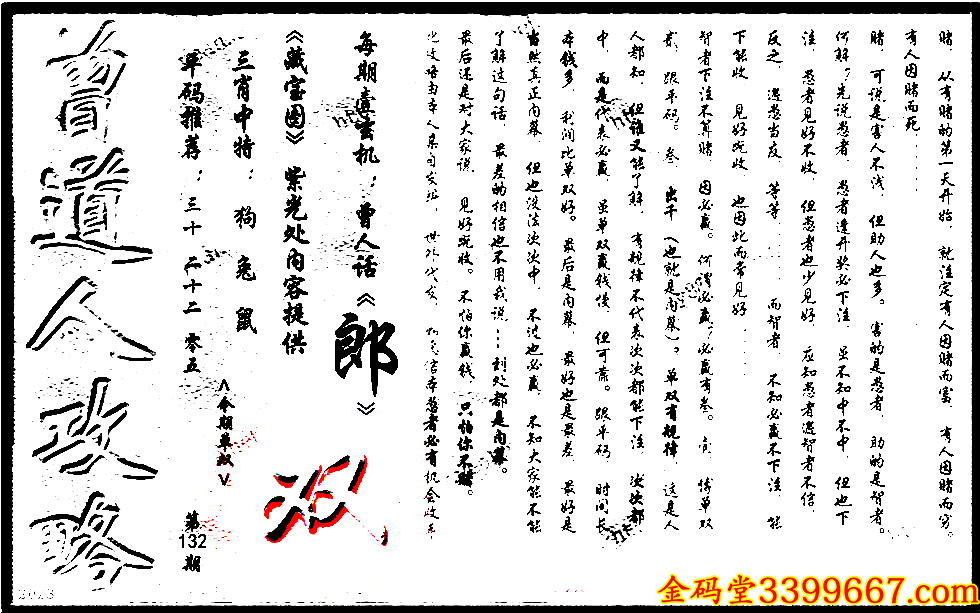 赌，从有赌的第一天开始，就注定有人因赌而富，有人因赌而穷。
有人因赌而死......
赌，可说是害人不浅，但助人也多。害的是愚者，助的是智者。
何解？先说愚者，愚者逢开奖必下注，虽不知中不中，但也下
注，愚者见好不收，但愚者也少见好，应知愚者遇智者不信，
反之，遇愚当友，等等......而智者，不知必赢不下注，能
下能收，见好就收，也因此而常见好......
智者下注不算赌，因必赢。何谓必赢？必赢有叁。壹，博单双
贰，跟单码。叁，出千（也就是内幕）。单双有规律，这是人
人都知，但谁又能了解，有规律不代表次次都能下注，次次都
中，而是代表必赢，虽单双赢钱慢，但可靠。跟单码，时间长
本钱多，利润比单双好。最后是内幕，最好也是最差，最好是
当然真正内幕，但也没法次次中，不过也必赢，不知大家能不能
了解这句话，最差的相信也不用我说...到处都是内幕。
最后还是对大家说，见好就收。不怕你赢钱，只怕你不赌。
每期壹玄机：曾人话《郎》
《藏宝图》紫光处内容提供
三肖中特：狗 兔 鼠
单码推荐：三十 二十二 零五
<今期单双>
双
第132期
曾道人攻略
2023
金码堂3399667.com